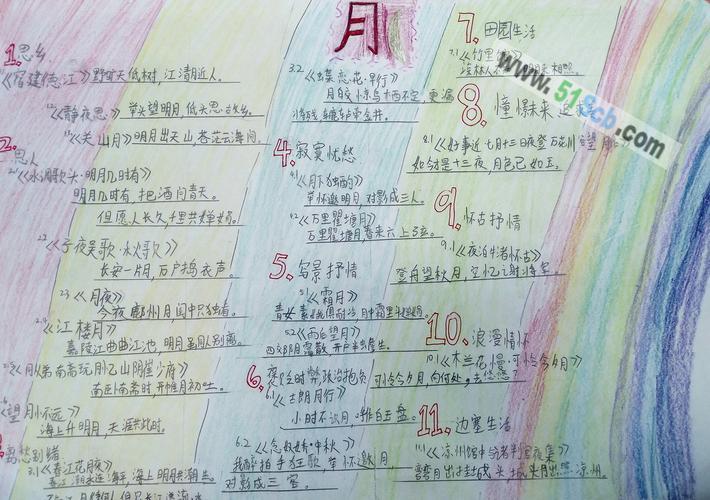 月
1. 思乡
《宿建德江》野旷天低树，江清月近人。
《静夜思》举头望明月，低头思故乡。
《关山月》明月出天山，苍茫云海间。
2. 思人
《水调歌头·明月几时有》
明月几时有，把酒问青天。
但愿人长久，千里共婵娟。
2.2 《子夜吴歌·秋歌》
长安一片月，万户捣衣声。
2.3 《月夜》
今夜鄜州月，闺中只独看。
2.4 《江楼月》
嘉陵江曲曲江池，明月虽同人别离。
《同从弟南斋玩月忆山阴崔少府》
南卧南斋时，开帷月初吐。
《望月怀远》
海上升明月，天涯共此时。
离愁别绪
3.1 《春江花月夜》
春江潮水连海平，海上明月共潮生。
3.2 《蝶恋花·早行》
月皎惊乌栖不定，更漏
4. 寂寞忧愁
4.1 《月下独酌》
举杯邀明月，对影成三人。
4.2 《万里瞿塘月》
万里瞿塘月，春来六上弦。
5. 写景抒情
5.1 《霜月》
青女素娥俱耐冷，月中霜里斗婵娟。
5.2 《雨后望月》
四郊阴霭散，开户半蟾生。
6. 政治抱负
6.1 《古朗月行》
小时不识月，呼作白玉盘。
6.2 《念奴娇·中秋》
我醉拍手狂歌，举杯邀月，
对影成三客。
7. 田园生活
7.1 《竹里馆》
深林人不知，明月来相照。
8. 憧憬未来
8.1 《好事近 七月十三日夜登万花川谷望月》
如今才是十三夜，月色已如玉。
9. 怀古抒情
9.1 《夜泊牛渚怀古》
登舟望秋月，空忆谢将军。
10. 浪漫情怀
10.1 《木兰花慢·可怜今夕月》
可怜今夕月，向何处，去悠悠？
11. 边塞生活
11.1 《凉州馆中与诸判官夜集》
弯弯月出挂城头，城头月出照凉州。
www.518cb.com